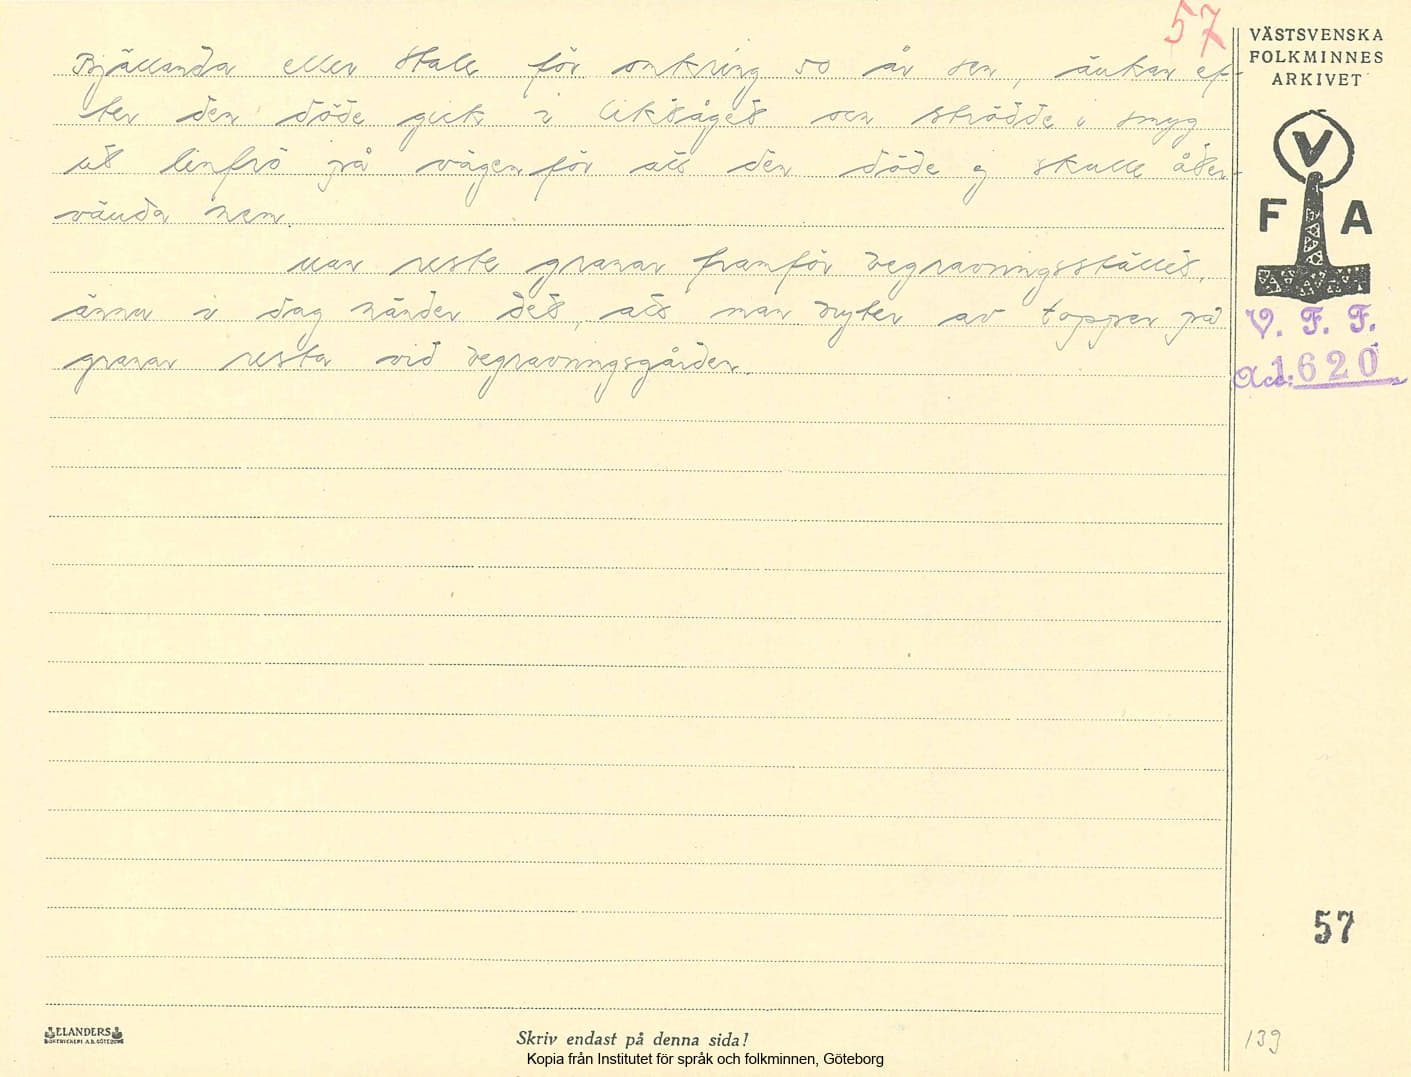 57
VÄSTSVENSKA
FOLKMINNES
ARKIVET
Bjällanda eller Stale för omkring 50 år sen, änkan ef-
ter den döde gick i liktåget och strödde i smyg
ut linfrö på vägen för att den döde ej skulle åter-
vända hem.
Man reste granar framför begravningsstället,
ännu i dag händer det, att man bryter av toppen på
granar resta vid begravningsgården.
V
F A
V. F. F.
Acc: 1620
57
139
ELANDERS
BOKTRYCKERI A.B. GÖTEBORG
Skriv endast på denna sida!
Kopia från Institutet för språk och folkminnen, Göteborg